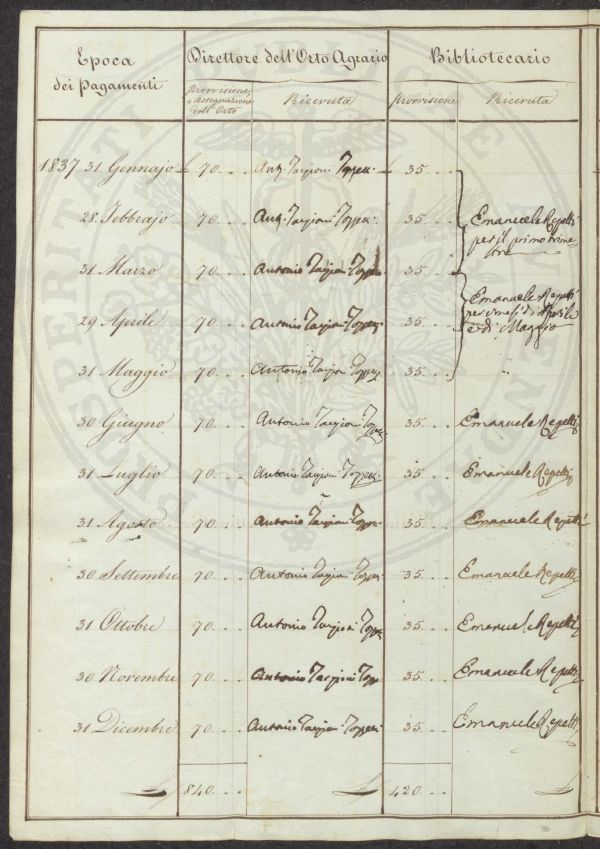 Epoca dei Pagamenti
Direttore dell'Orto Agrario
Bibliotecario
Provvisione, e Assegnazione dell'Orto
Ricevuta
Provvisione
Ricevuta
1837 31 Gennajo £ 70... Ant. Targioni Tozzetti £ 35...
28 Febbrajo 70... Ant. Targioni Tozzetti 35... Emanuele Repetti
per il primo trime
stre
31 Marzo 70... Antonio Targioni Tozzetti 35...
Emanuele Repetti
per i mesi di Aprile
e di Maggio
29 Aprile 70... Antonio Targioni Tozzetti 35...
31 Maggio 70... Antonio Targioni Tozzetti 35...
30 Giugno 70... Antonio Targioni Tozzetti 35... Emanuele Repetti
31 Luglio 70... Antonio Targioni Tozzetti 35... Emanuele Repetti
31 Agosto 70... Antonio Targioni Tozzetti 35... Emanuele Repetti
30 Settembre 70... Antonio Targioni Tozzetti 35... Emanuele Repetti
31 Ottobre 70... Antonio Targioni Tozzetti 35... Emanuele Repetti
30 Novembre 70... Antonio Targioni Tozzetti 35... Emanuele Repetti
31 Dicembre 70... Antonio Targioni Tozzetti 35... Emanuele Repetti
£ 840... £ 420... £
PROSPERITATI PUBLICAE AUGENDAE